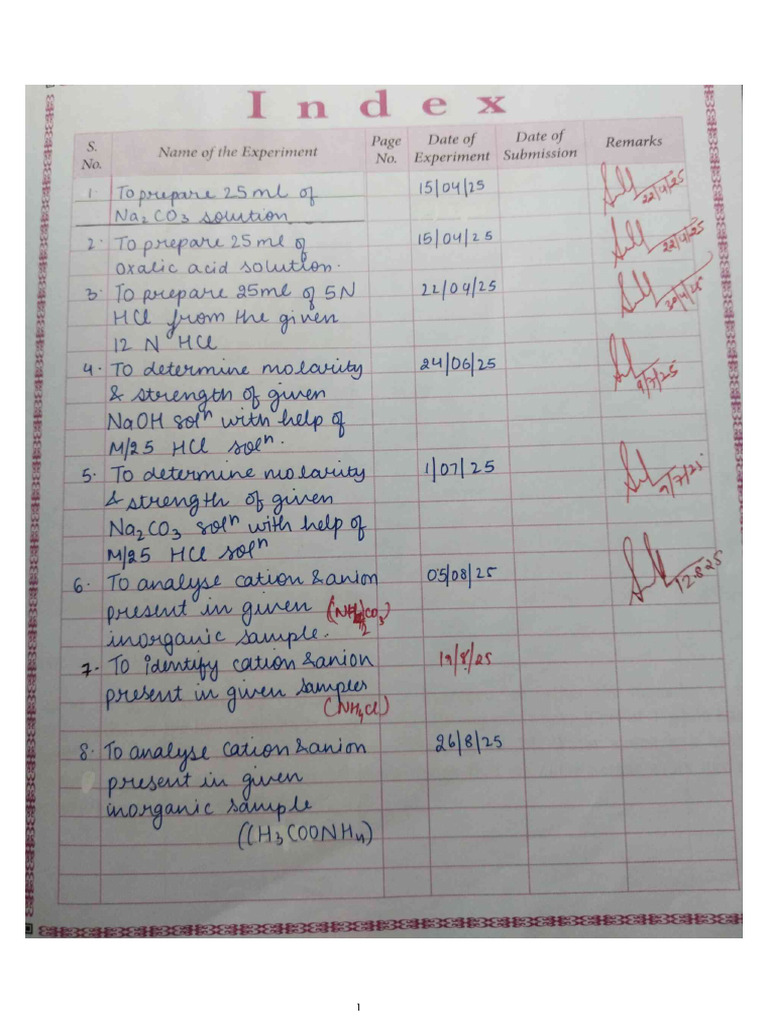 Index
S. No. Name of the Experiment Page No. Date of Experiment Date of Submission Remarks
1 To prepare 25 ml of 15/04/25
Na2CO3 solution 22/4/25
2. To prepare 25 ml of 15/04/25
oxalic acid solution. 22/4/25
3. To prepare 25ml of 5N 22/04/25
HCl from the given 30/4/25
12 N HCl
4. To determine molarity 24/06/25
& strength of given 9/7/25
NaOH soln with help of
M/25 HCl soln.
5. To determine molarity 1/07/25
& strength of given 9/7/25
Na2CO3 soln with help of
M/25 HCl soln
6. To analyse cation & anion 05/08/25
present in given (NH4)2CO3 12.8.25
inorganic sample.
7. To identify cation & anion 19/8/25
present in given samples
(NH4Cl)
8. To analyse cation & anion 26/8/25
present in given
inorganic sample
(CH3COONH4)
1